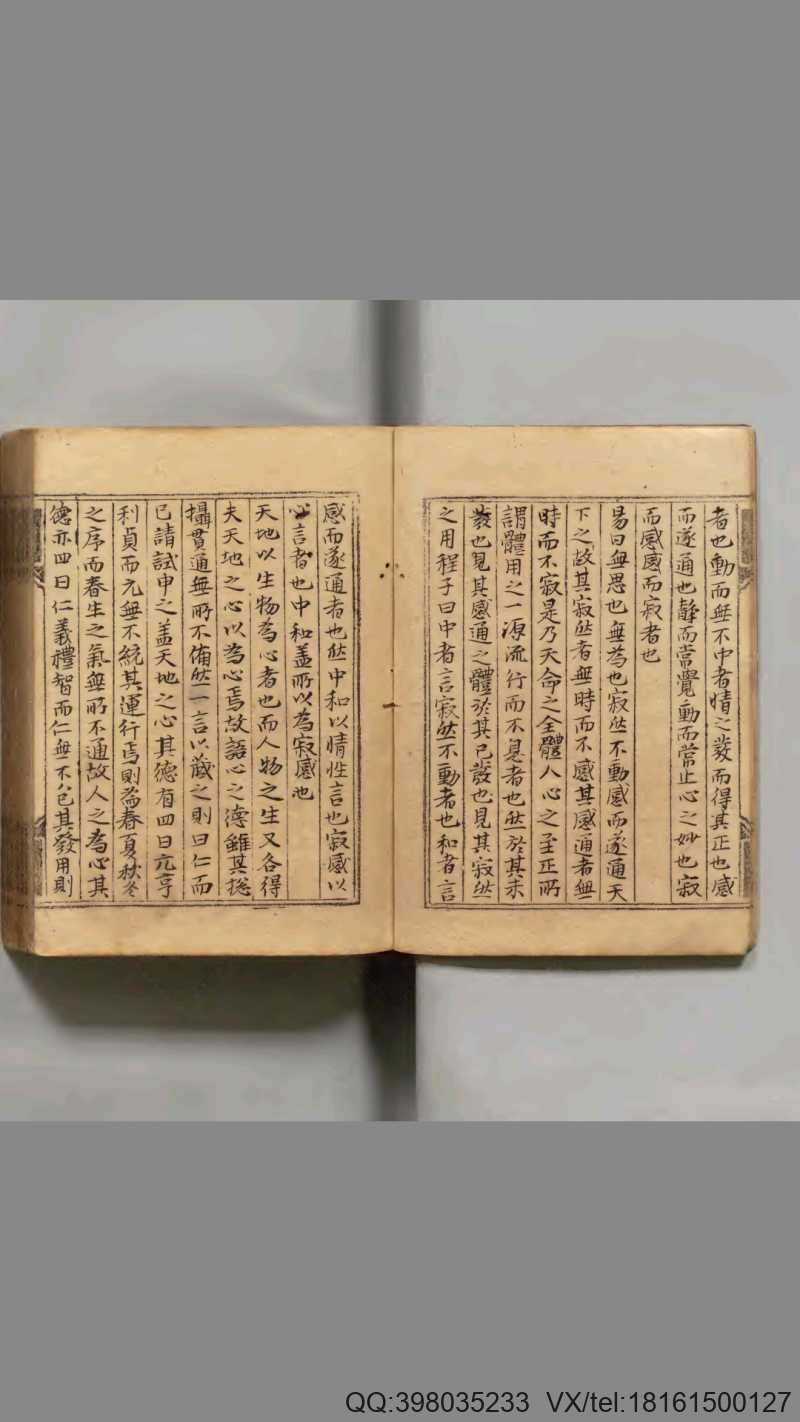 者也動而無不中者情之發而得其正也感
而遂通也靜而常覺動而常止心之妙也寂
而感感而寂者也
易曰無思也無為也寂然不動感而遂通天
下之故其寂然者無時而不感其感通者無
時而不寂是乃天命之全體人心之至正所
謂體用之一源流行而不息者也然於其未
發也見其感通之體於其已發也見其寂然
之用程子曰中者言寂然不動者也和者言
感而遂通者也然中和以情性言也寂感以
心言者也中和蓋所以為寂感也
天地以生物為心者也而人物之生又各得
夫天地之心以為心焉故語心之德雖其揔
攝貫通無所不備然一言以蔽之則曰仁而
已請試申之蓋天地之心其德有四曰元亨
利貞而元無不統其運行焉則為春夏秋冬
之序而春生之氣無所不通故人之為心其
德亦四曰仁義禮智而仁無不包其發用則
QQ:398035233 VX/tel:18161500127